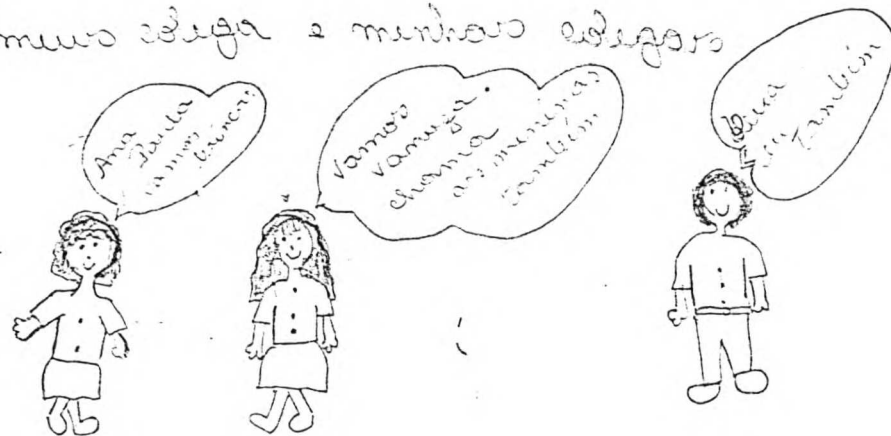 meus colega e minhas colegas
Ana
Paula
vamos
brincar
Vamos
Vanuza
chama
as meninas
também
eu também